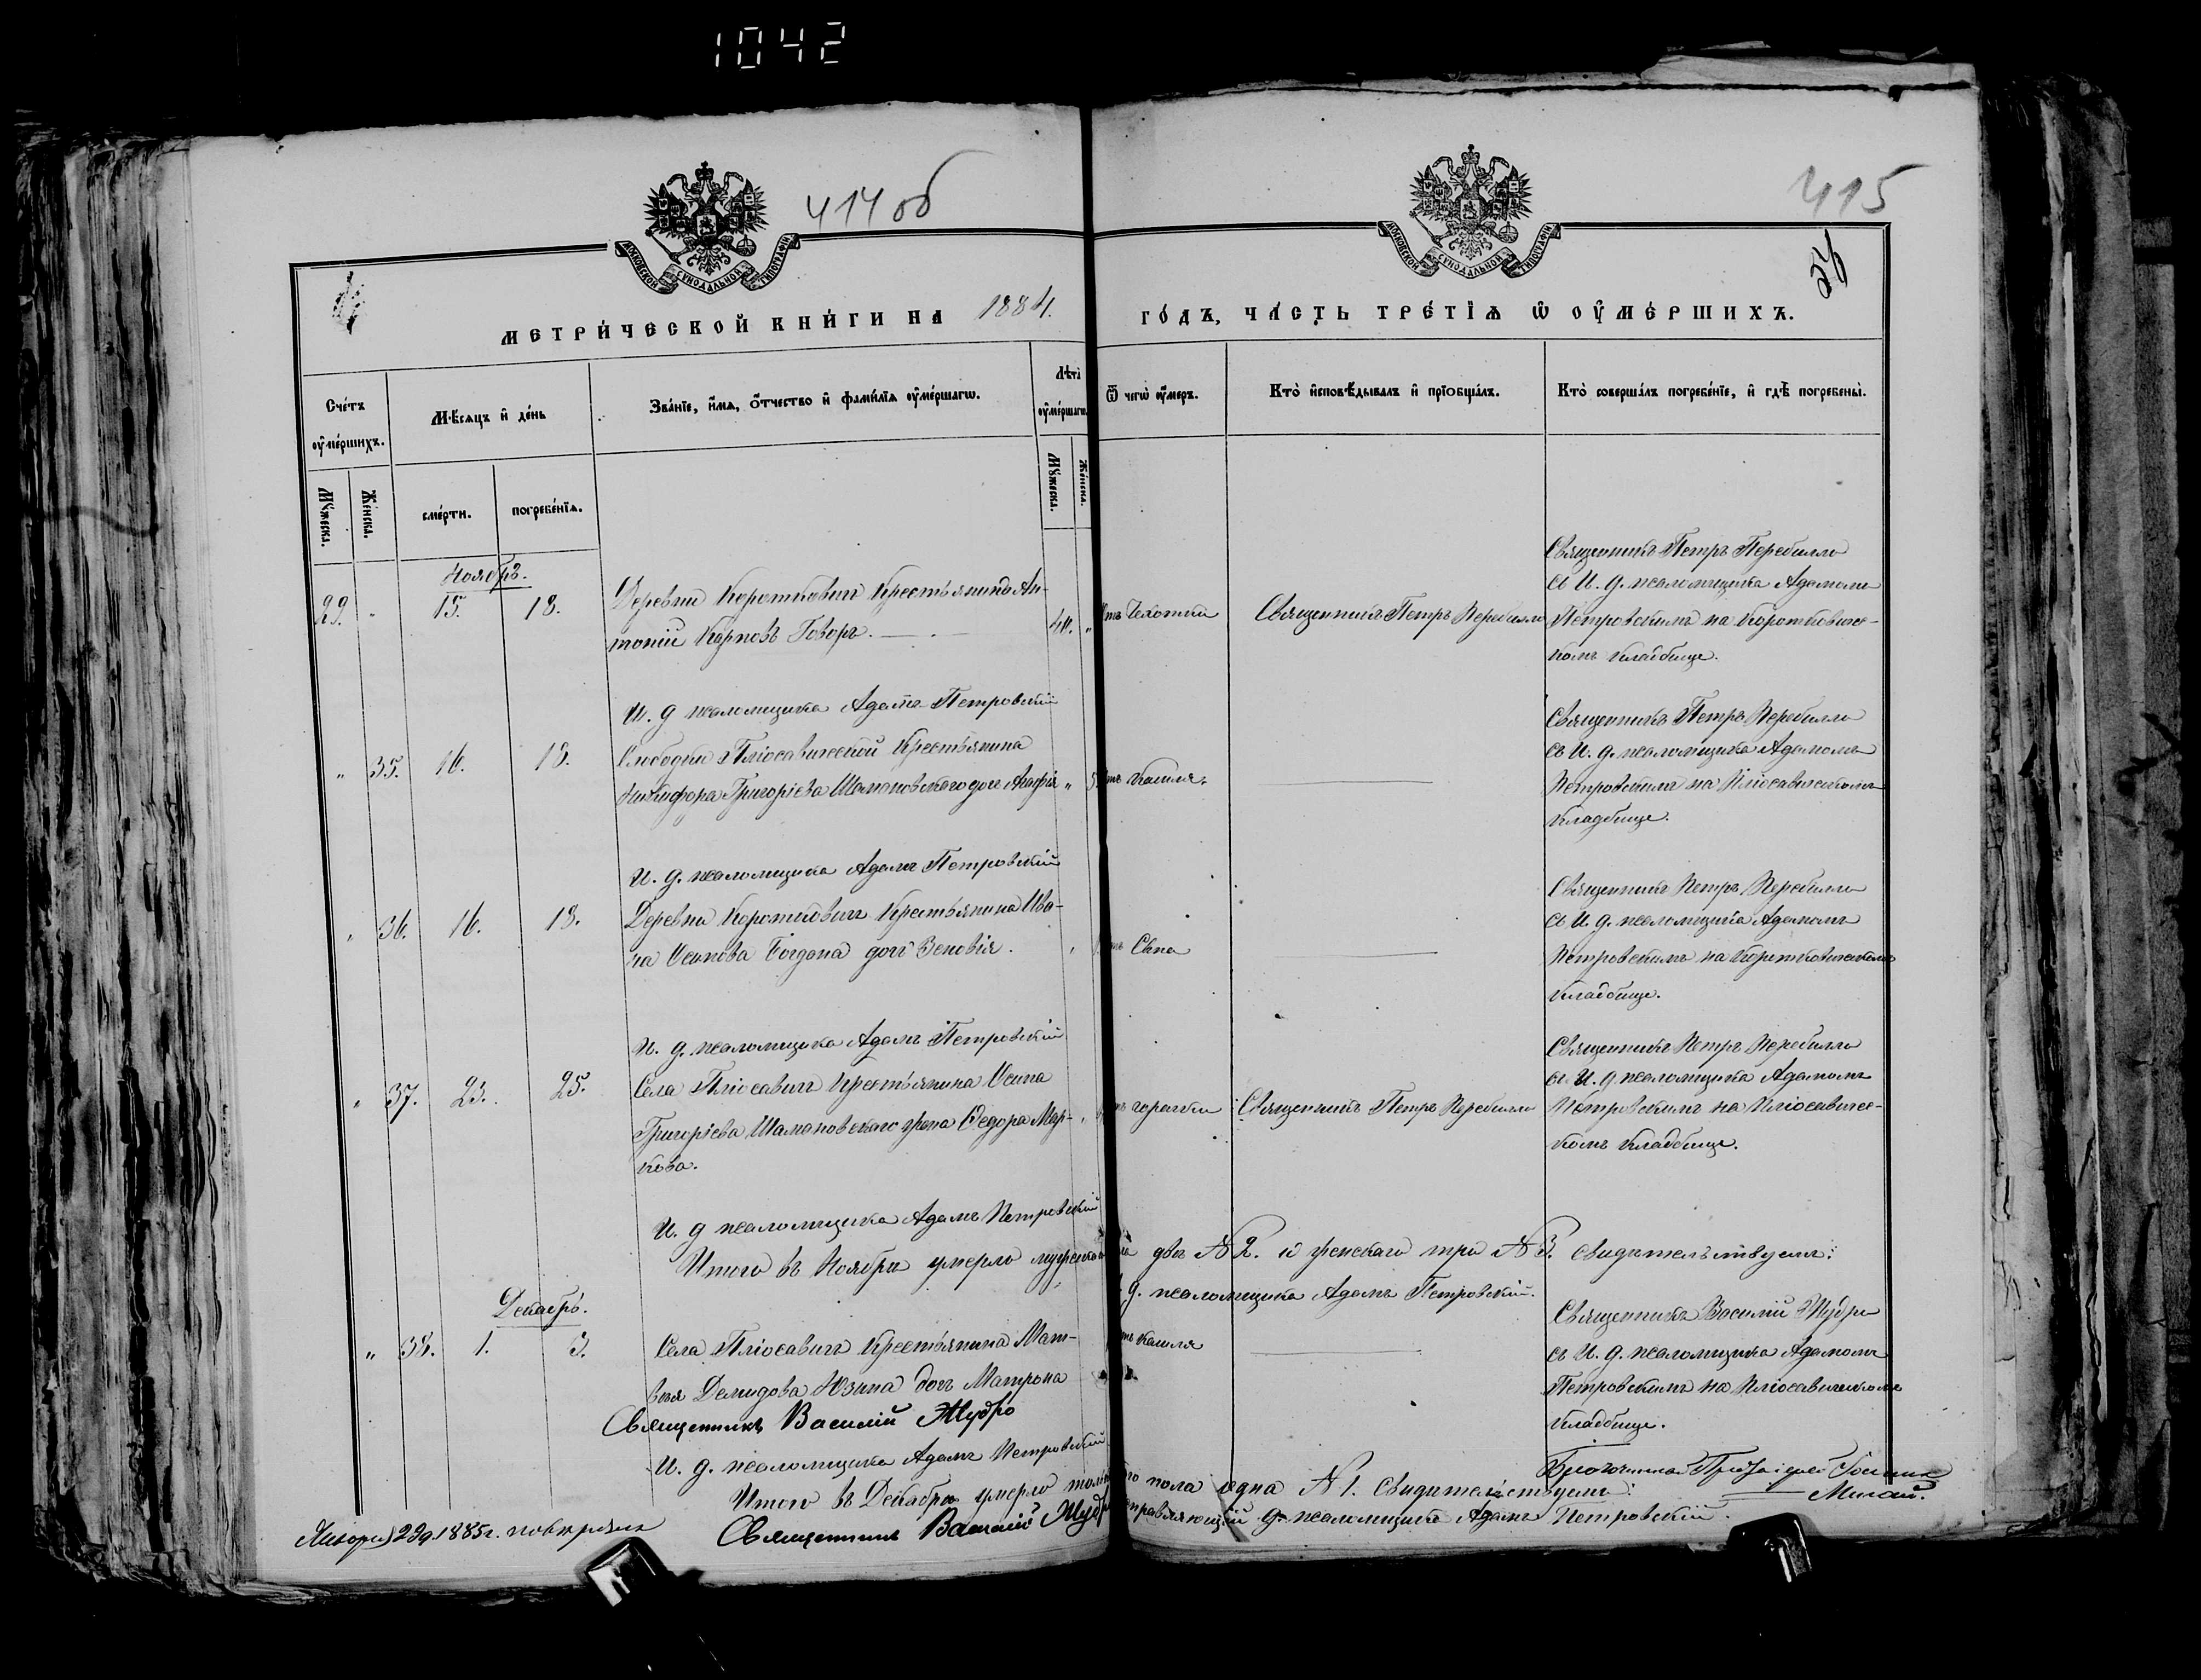 1042
414 об
415
МОСКОВСКОЙ СѴНОДАЛЬНОЙ ТИПОГРАФІИ
МОСКОВСКОЙ СѴНОДАЛЬНОЙ ТИПОГРАФІИ
МЕТРИ́ЧЕСКОЙ КНИ́ГИ НА 1884.
ГО́ДЪ, ЧА́СТЬ ТРЕ́ТІѦ Ѡ ОУ҆МЕ́РШИХЪ.
Сче́тъ оу҆ме́ршихъ.
Мѣ́сѧцъ и҆ де́нь
Зва́нїе, и҆́мѧ, ѻ҆́тчество и҆ фами́лїѧ оу҆ме́ршагѡ.
Лѣ́тѡ оу҆ме́ршагѡ
Ѿ чегѡ̀ оу҆́меръ.
Кто̀ и҆сповѣ́дывалъ и҆ прїѡбща́лъ.
Кто̀ соверша́лъ погребе́нїе, и҆ гдѣ̀ погребены̀.
Мꙋ́жеска.
Же́нска.
сме́рти.
погребе́нїѧ.
Мꙋ́жеска.
Же́нска.
Ноябрь.
29. " 15. 18.
Деревни Коротковичъ Крестьянинъ Ан-
тоній Карповъ Говоръ.
40. "
отъ Чахотки
Священникъ ПетръПеребилло
Священникъ Петръ Перебилло
съ И. д. псаломщика Адамомъ
Петровскимъ на Коротковичс-
комъ кладбище.
И. д псаломщика Адамъ Петровскій
" 35. 16. 18.
Слободки Пліосавичской Крестьянина
Никифора Григоріева Шамановскаго дочь Агафія "
отъ Кашля.
Священникъ Петръ Перебилло
съ И. д. псаломщика Адамомъ
Петровскимъ на Пліосавичскомъ
кладбище.
И. д. псаломщика Адамъ Петровскій
" 36. 16. 18.
Деревни Коротковичъ Крестьянина Ива-
на Осипова Богдана дочь Зеновія.
отъ Спа
Священникъ Петръ Перебилло
съ И. д. псаломщика Адамомъ
Петровскимъ на Коротковичскомъ
кладбище.
И. д. псаломщика Адамъ Петровскій
" 37. 23. 25.
Села Пліосавичъ Крестьянина Осипа
Григоріева Шамановскаго жена Федора Мар-
кова.
отъ горячки
Священникъ Петръ Перебилло
Священникъ Петръ Перебилло
съ И. д. псаломщика Адамомъ
Петровскимъ на Пліосавичс-
комъ кладбище.
И. д псаломщика Адамъ Петровскій
Итого въ Ноябрѣ умерло мужескаго два № 2. и женскаго три № 3. свидѣтельствуемъ:
д. псаломщика Адамъ Петровскій.
Декабрь.
" 38. 1. 3.
Села Пліосавичъ Крестьянина Мат-
вея Демидова Юзина дочь Матрона
отъ кашля
Священникъ Василій Мудро
съ И. д. псаломщика Адамомъ
Петровскимъ на Пліосавичскомъ
кладбище.
Священникъ Василій Мудро
И. д. псаломщика Адамъ Петровскій
Итого въ Декабрѣ умерло пола одна № 1. Свидѣтельствуемъ:
Священникъ Василій Мудро
д. псаломщика Адамъ Петровскій.
Благочинный Протоіерей
1885 г.